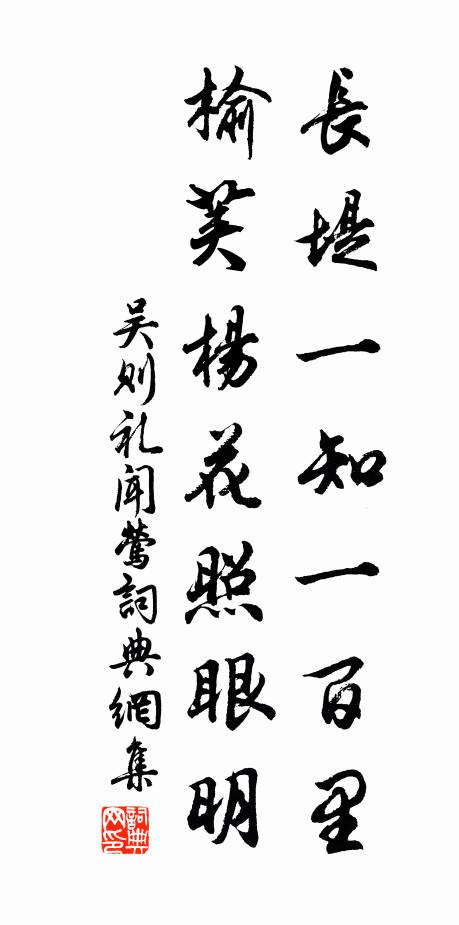 長堤一知一百里
榆荚楊花照眼明
吴则礼闻鶯詞典網集
詞典网印